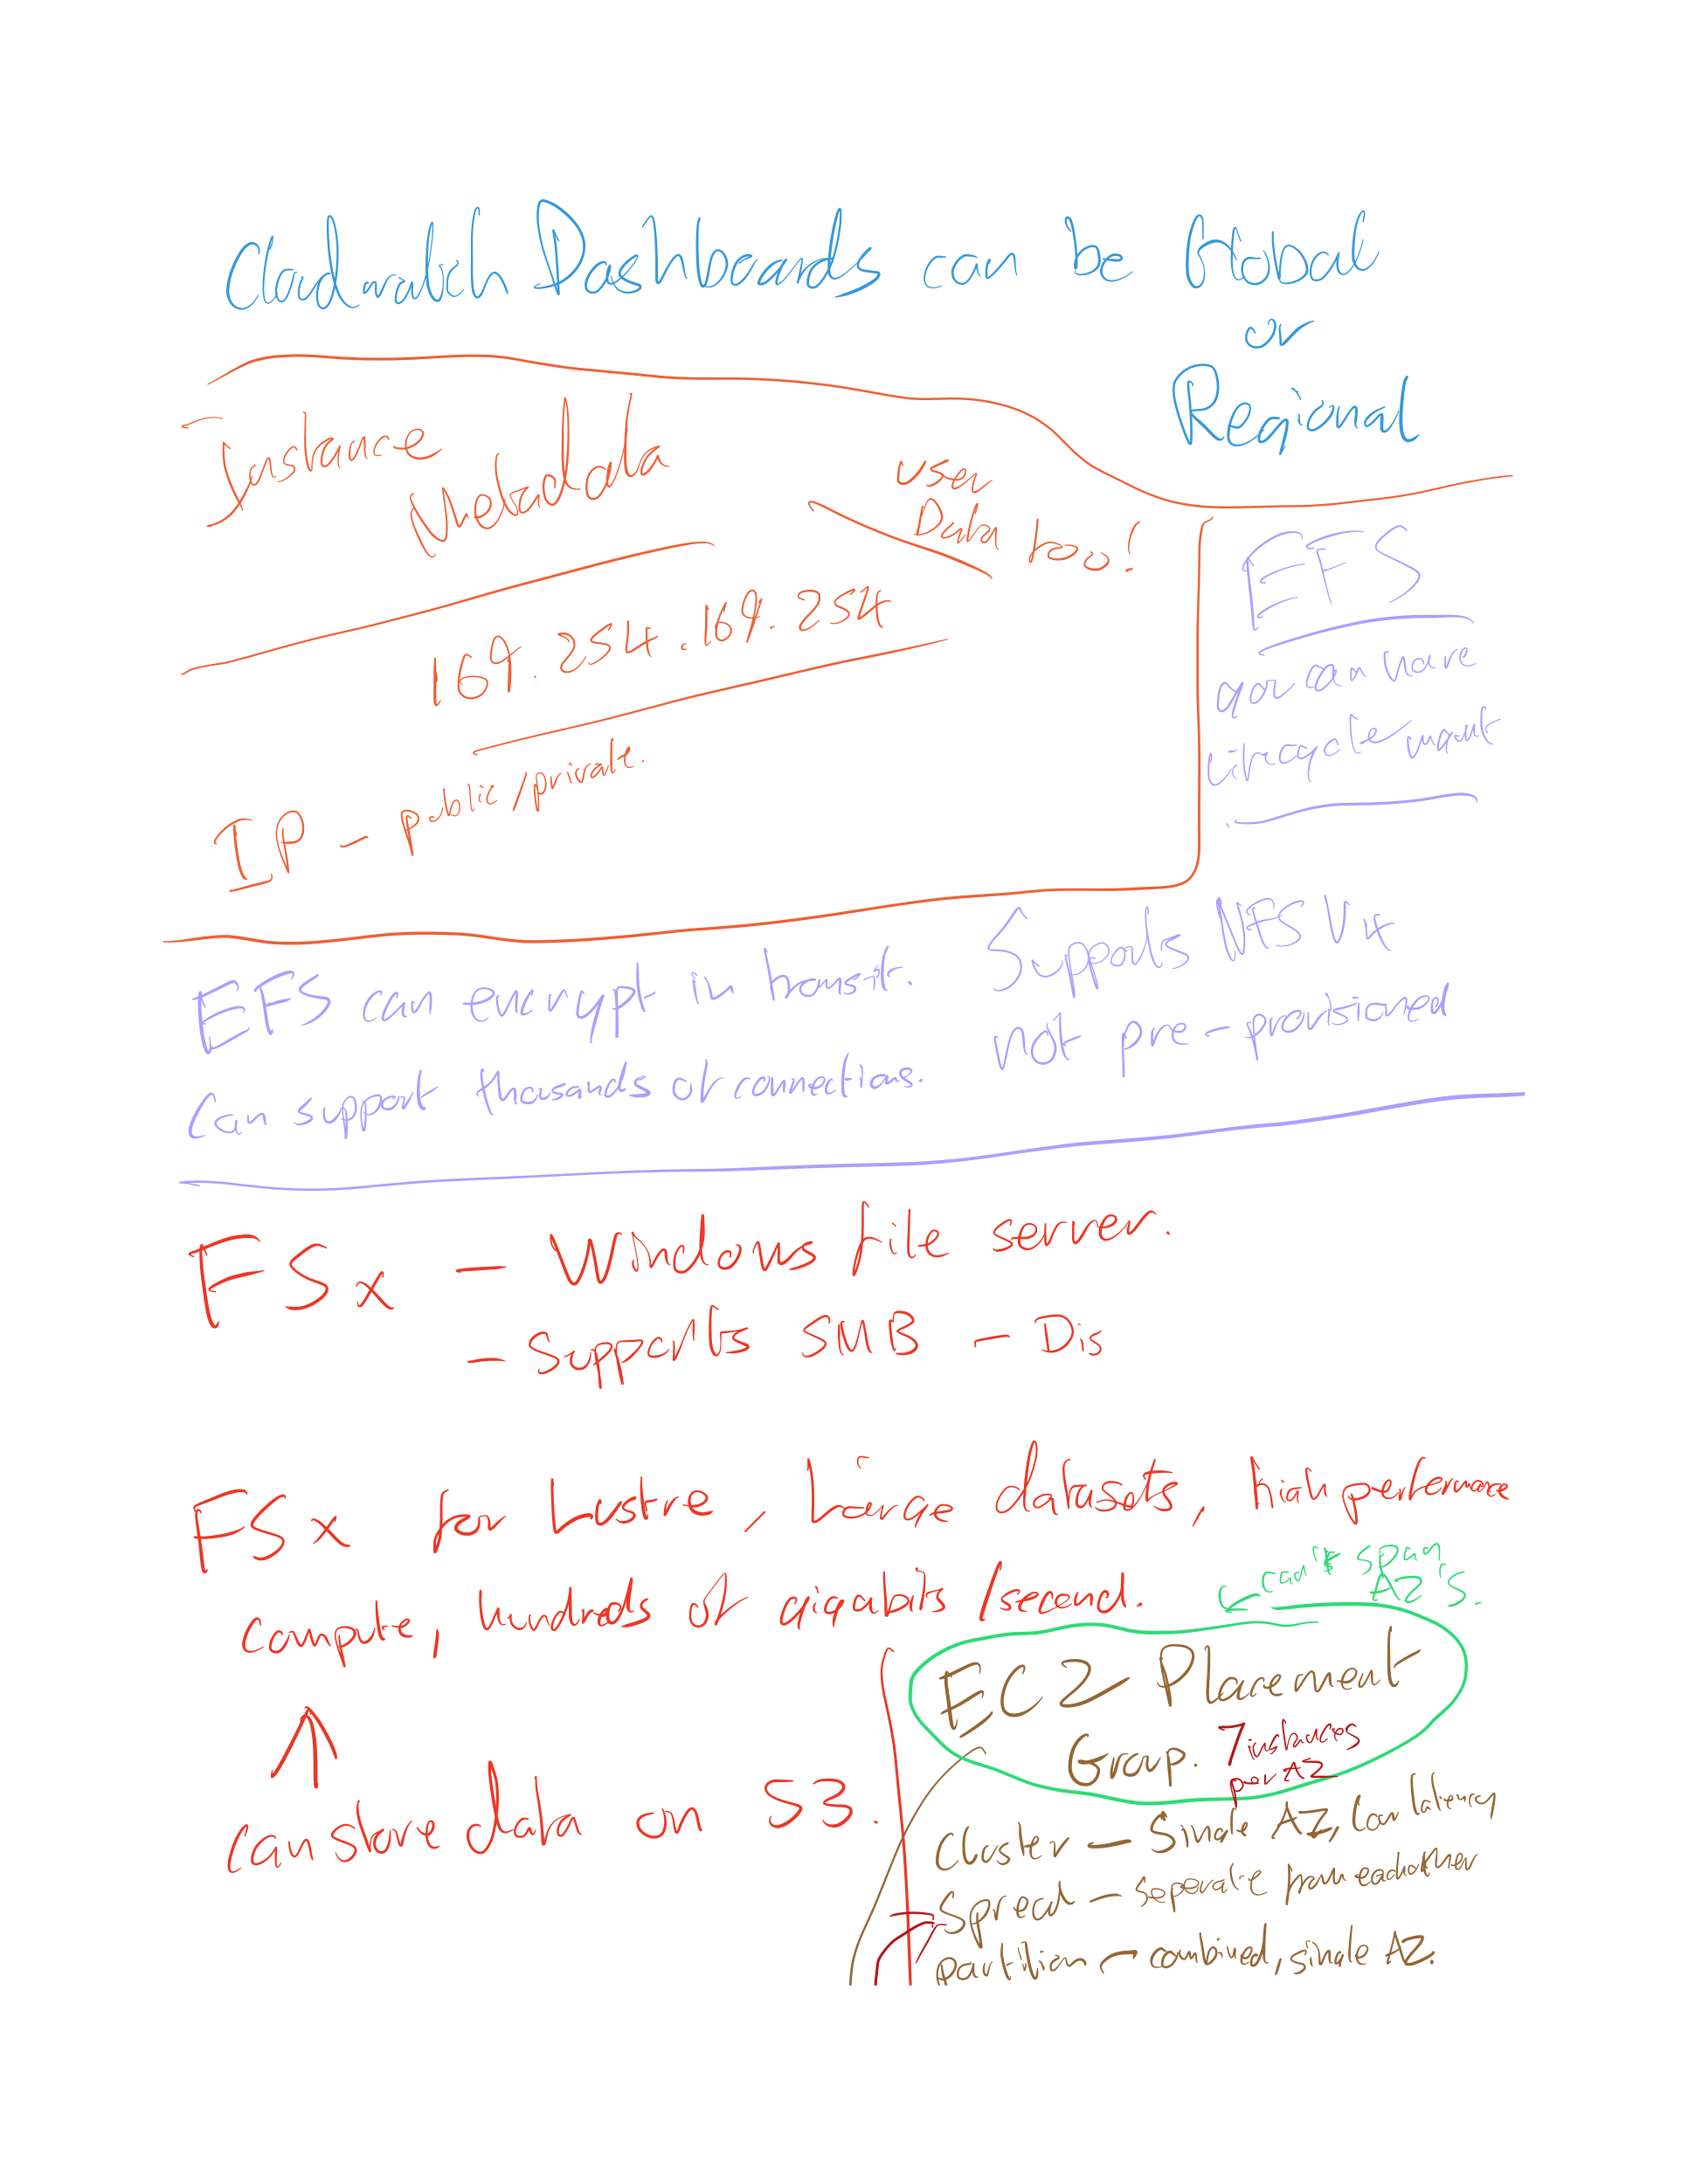 Cloudwatch Dashboards can be Global
or
Regional
Instance
Metadata
user
Data too!
169.254.169.254
IP - public/private.
EFS
you can have
lifecycle mgmt
EFS can encrypt in transit. Supports NFS V4
not pre-provisioned
Can support thousands of connections.
FSx - Windows file server.
- Supports SMB - Dis
FSx for Lustre, Large datasets, high performance
compute, hundreds of gigabits/second.
can store data on S3.
can't span
AZ's.
EC2 Placement
Group. 7 instances
per AZ
Cluster - Single AZ, Low latency
Spread - seperate from eachother
partition - combined, single AZ.